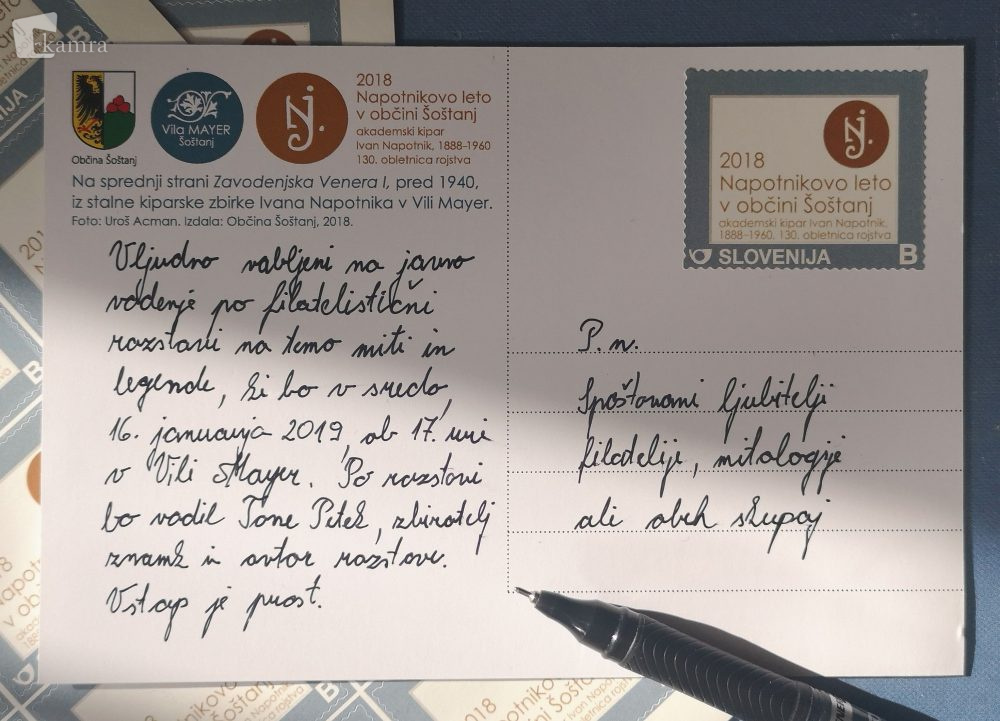 kamra
Občina Šoštanj
Vila MAYER
Šoštanj
2018
Napotnikovo leto
v občini Šoštanj
akademski kipar
Ivan Napotnik, 1888-1960
130. obletnica rojstva
Na sprednji strani Zavodenjska Venera I, pred 1940,
iz stalne kiparske zbirke Ivana Napotnika v Vili Mayer.
Foto: Uroš Acman. Izdala: Občina Šoštanj, 2018.
Vljudno vabljeni na javno
vodenje po filatelistični
razstavi na temo miti in
legende, ki bo v sredo,
16. januarja 2019, ob 17. uri
v Vili Mayer. Po razstavi
bo vodil Tone Petek, zbiratelj
znamk in avtor razstave.
Vstop je prost.
2018
Napotnikovo leto
v občini Šoštanj
akademski kipar Ivan Napotnik,
1888-1960, 130. obletnica rojstva
SLOVENIJA B
P.n.
Spoštovani ljubitelji
filatelije, mitologije
ali obeh skupaj